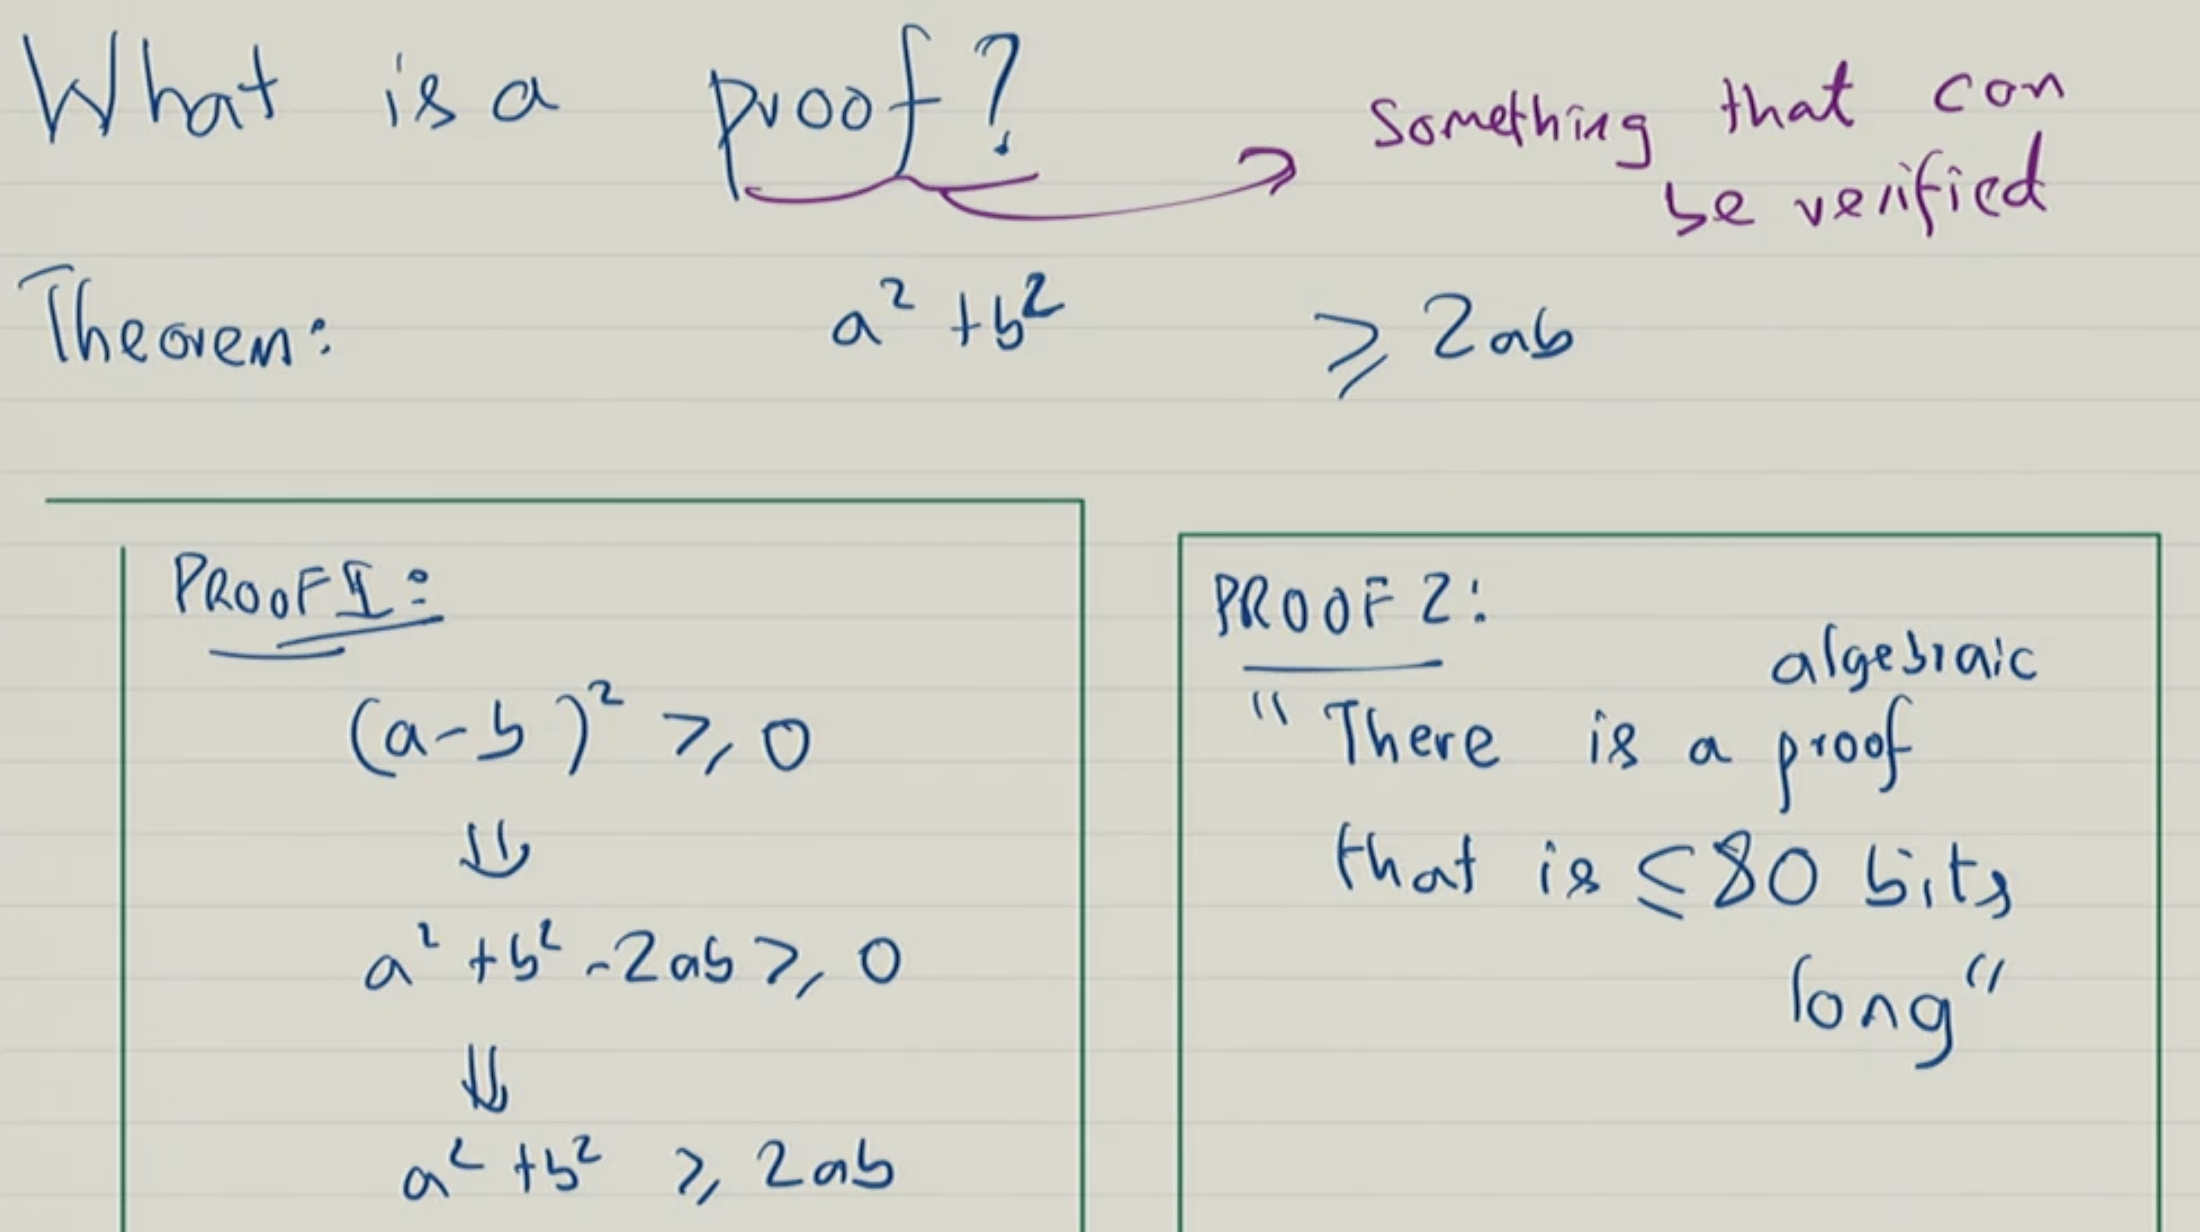 What is a proof?
Something that can
be verified
Theorem: a² + b² ≥ 2ab
PROOF 1:
(a-b)² ≥ 0
⇓
a² + b² - 2ab ≥ 0
⇓
a² + b² ≥ 2ab
PROOF 2:
algebraic
"There is a proof
that is ≤ 80 bits
long"